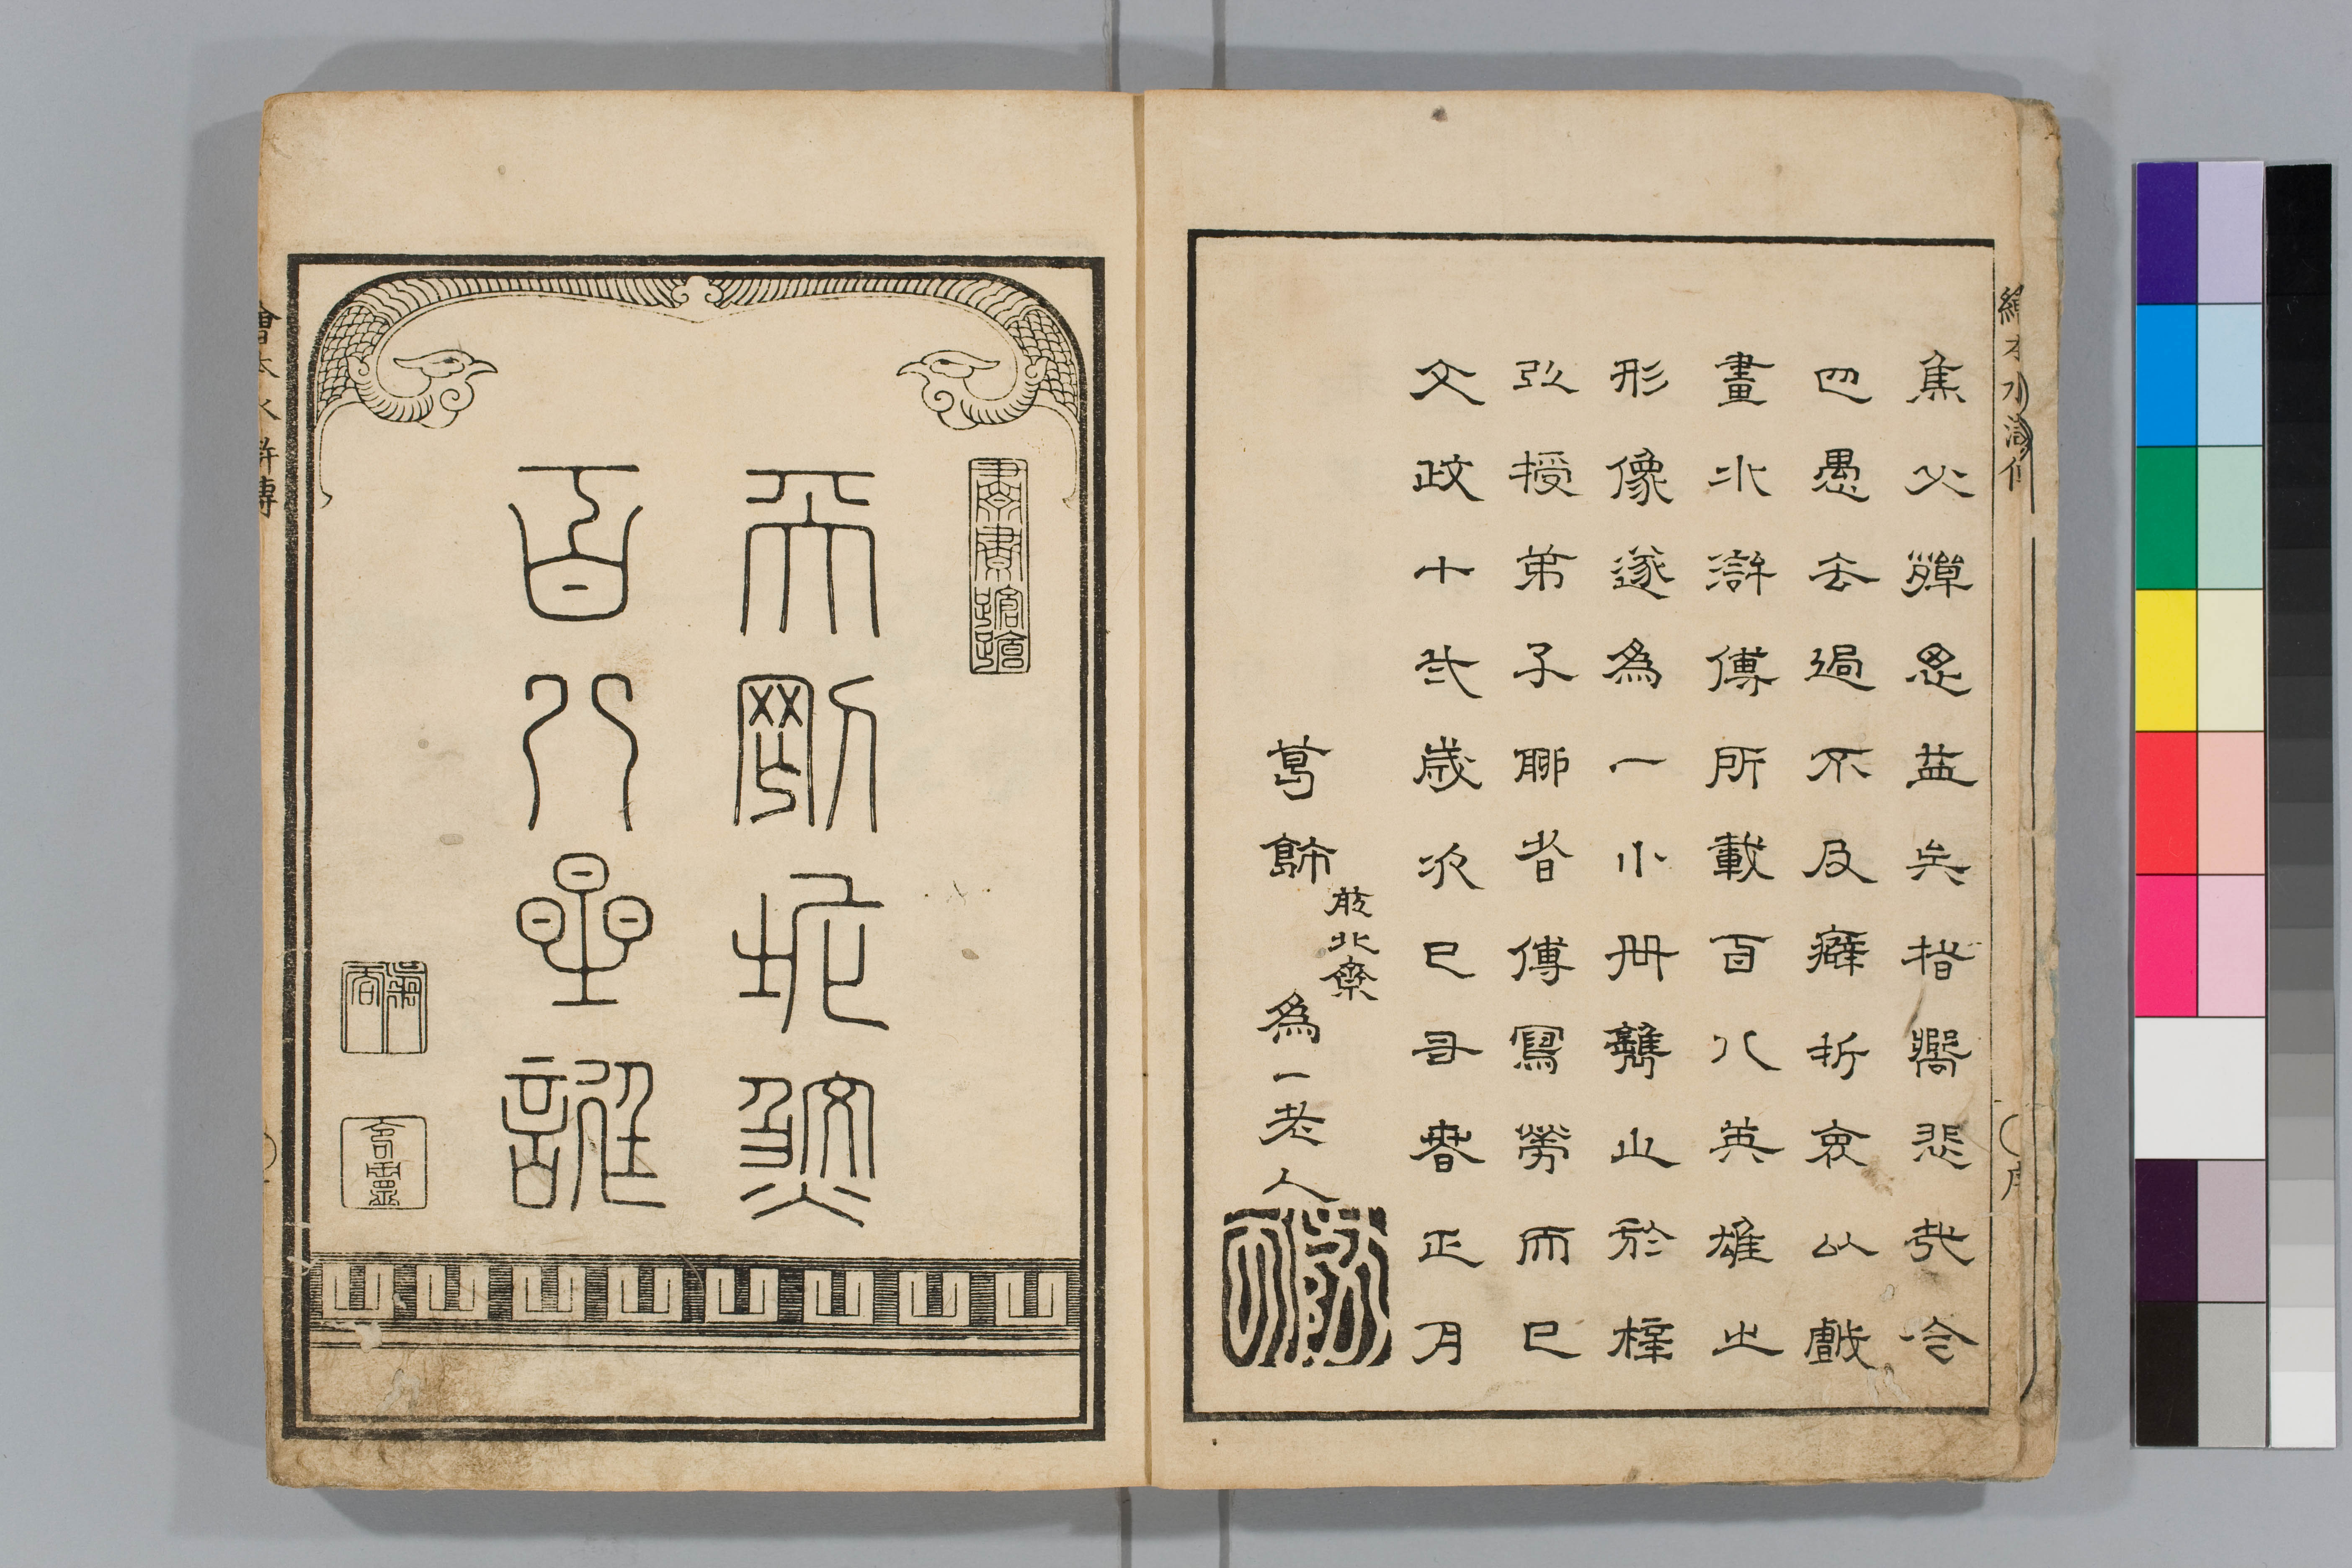 繪本水滸傳
序
焦心殫思益失指嚮悲哉今
也愚去過不及癖折衷以戲
畫水滸傳所載百八英雄之
形像遂為一小冊之於梓
以授弟子聊省傳寫勞而已
文政十弐歳次己丑春正月
葛飾前北齋為一老人
天剛地煞
百八星誰
繪本水滸傳